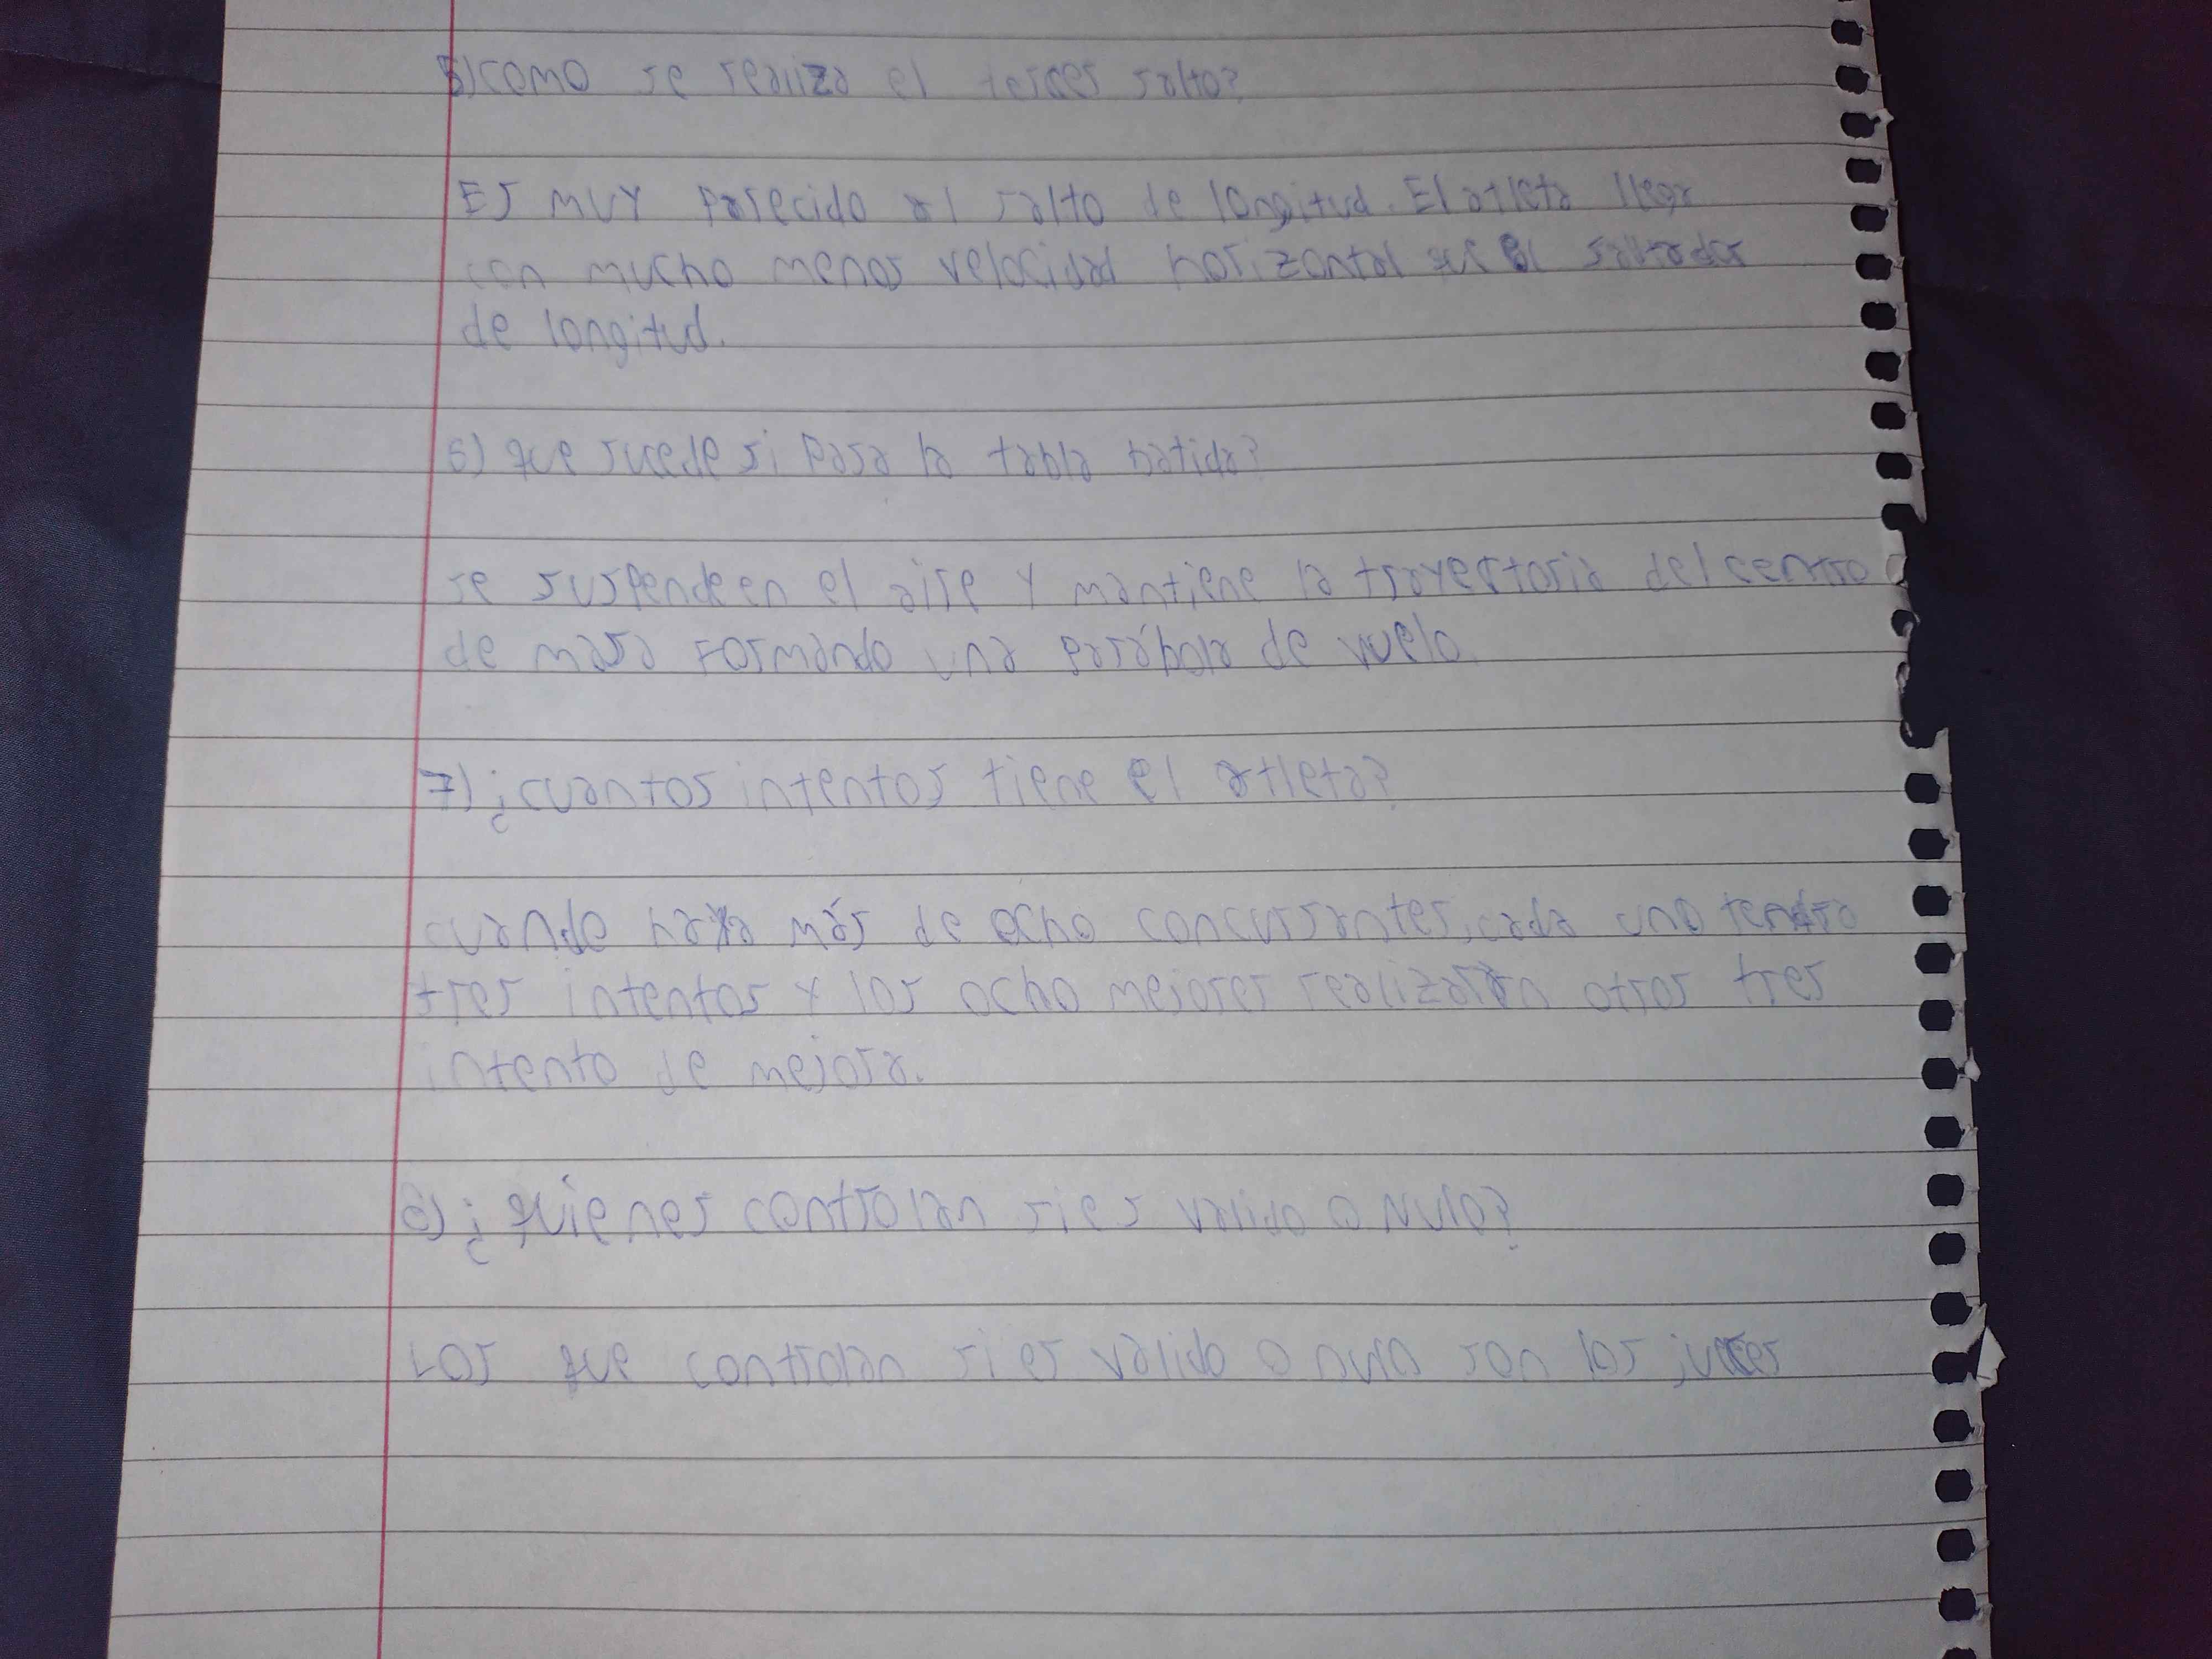 5) como se realiza el tercer salto?
Es muy parecido al salto de longitud. El atleta llega
con mucho menos velocidad horizontal que el saltador
de longitud.
6) que sucede si pasa la tabla batida?
se suspende en el aire y mantiene la trayectoria del centro
de masa formando una parábola de vuelo.
7) ¿cuantos intentos tiene el atleta?
cuando haya más de ocho concursantes, cada uno tendra
tres intentos y los ocho mejores realizarán otros tres
intento de mejora.
¿quienes controlan si es valido o nulo?
Los que controlan si es valido o nulo son los jueces